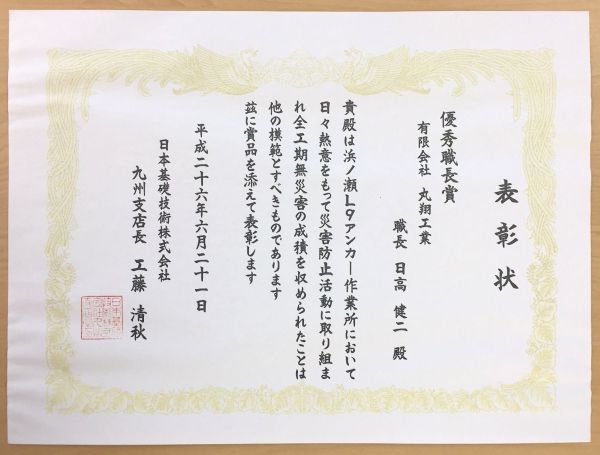 表彰状
優秀職長賞
有限会社 丸翔工業
職長 日高 健二 殿
貴殿は浜ノ瀬L9アンカー作業所において
日々熱意をもって災害防止活動に取り組ま
れ全工期無災害の成積を収められたことは
他の模範とすべきものであります
茲に賞品を添えて表彰します
平成二十六年六月二十一日
日本基礎技術株式会社
九州支店長 工藤 清秋